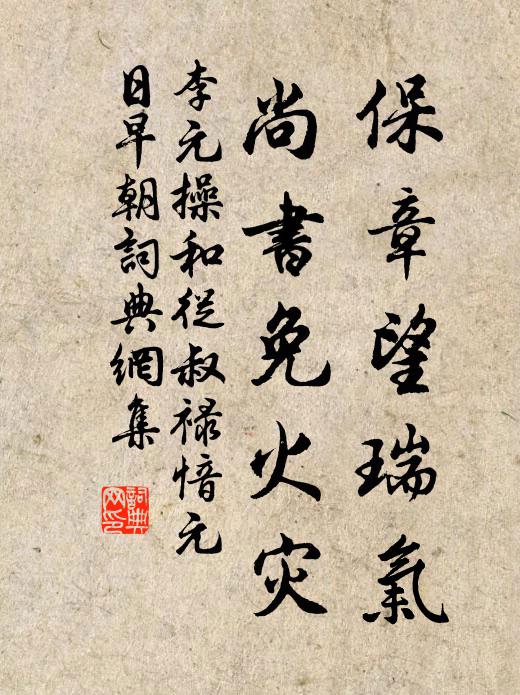 保章望瑞氣
尚書免火灾
李元操和從叔禄愔元
日早朝詞典網集
詞典
网印